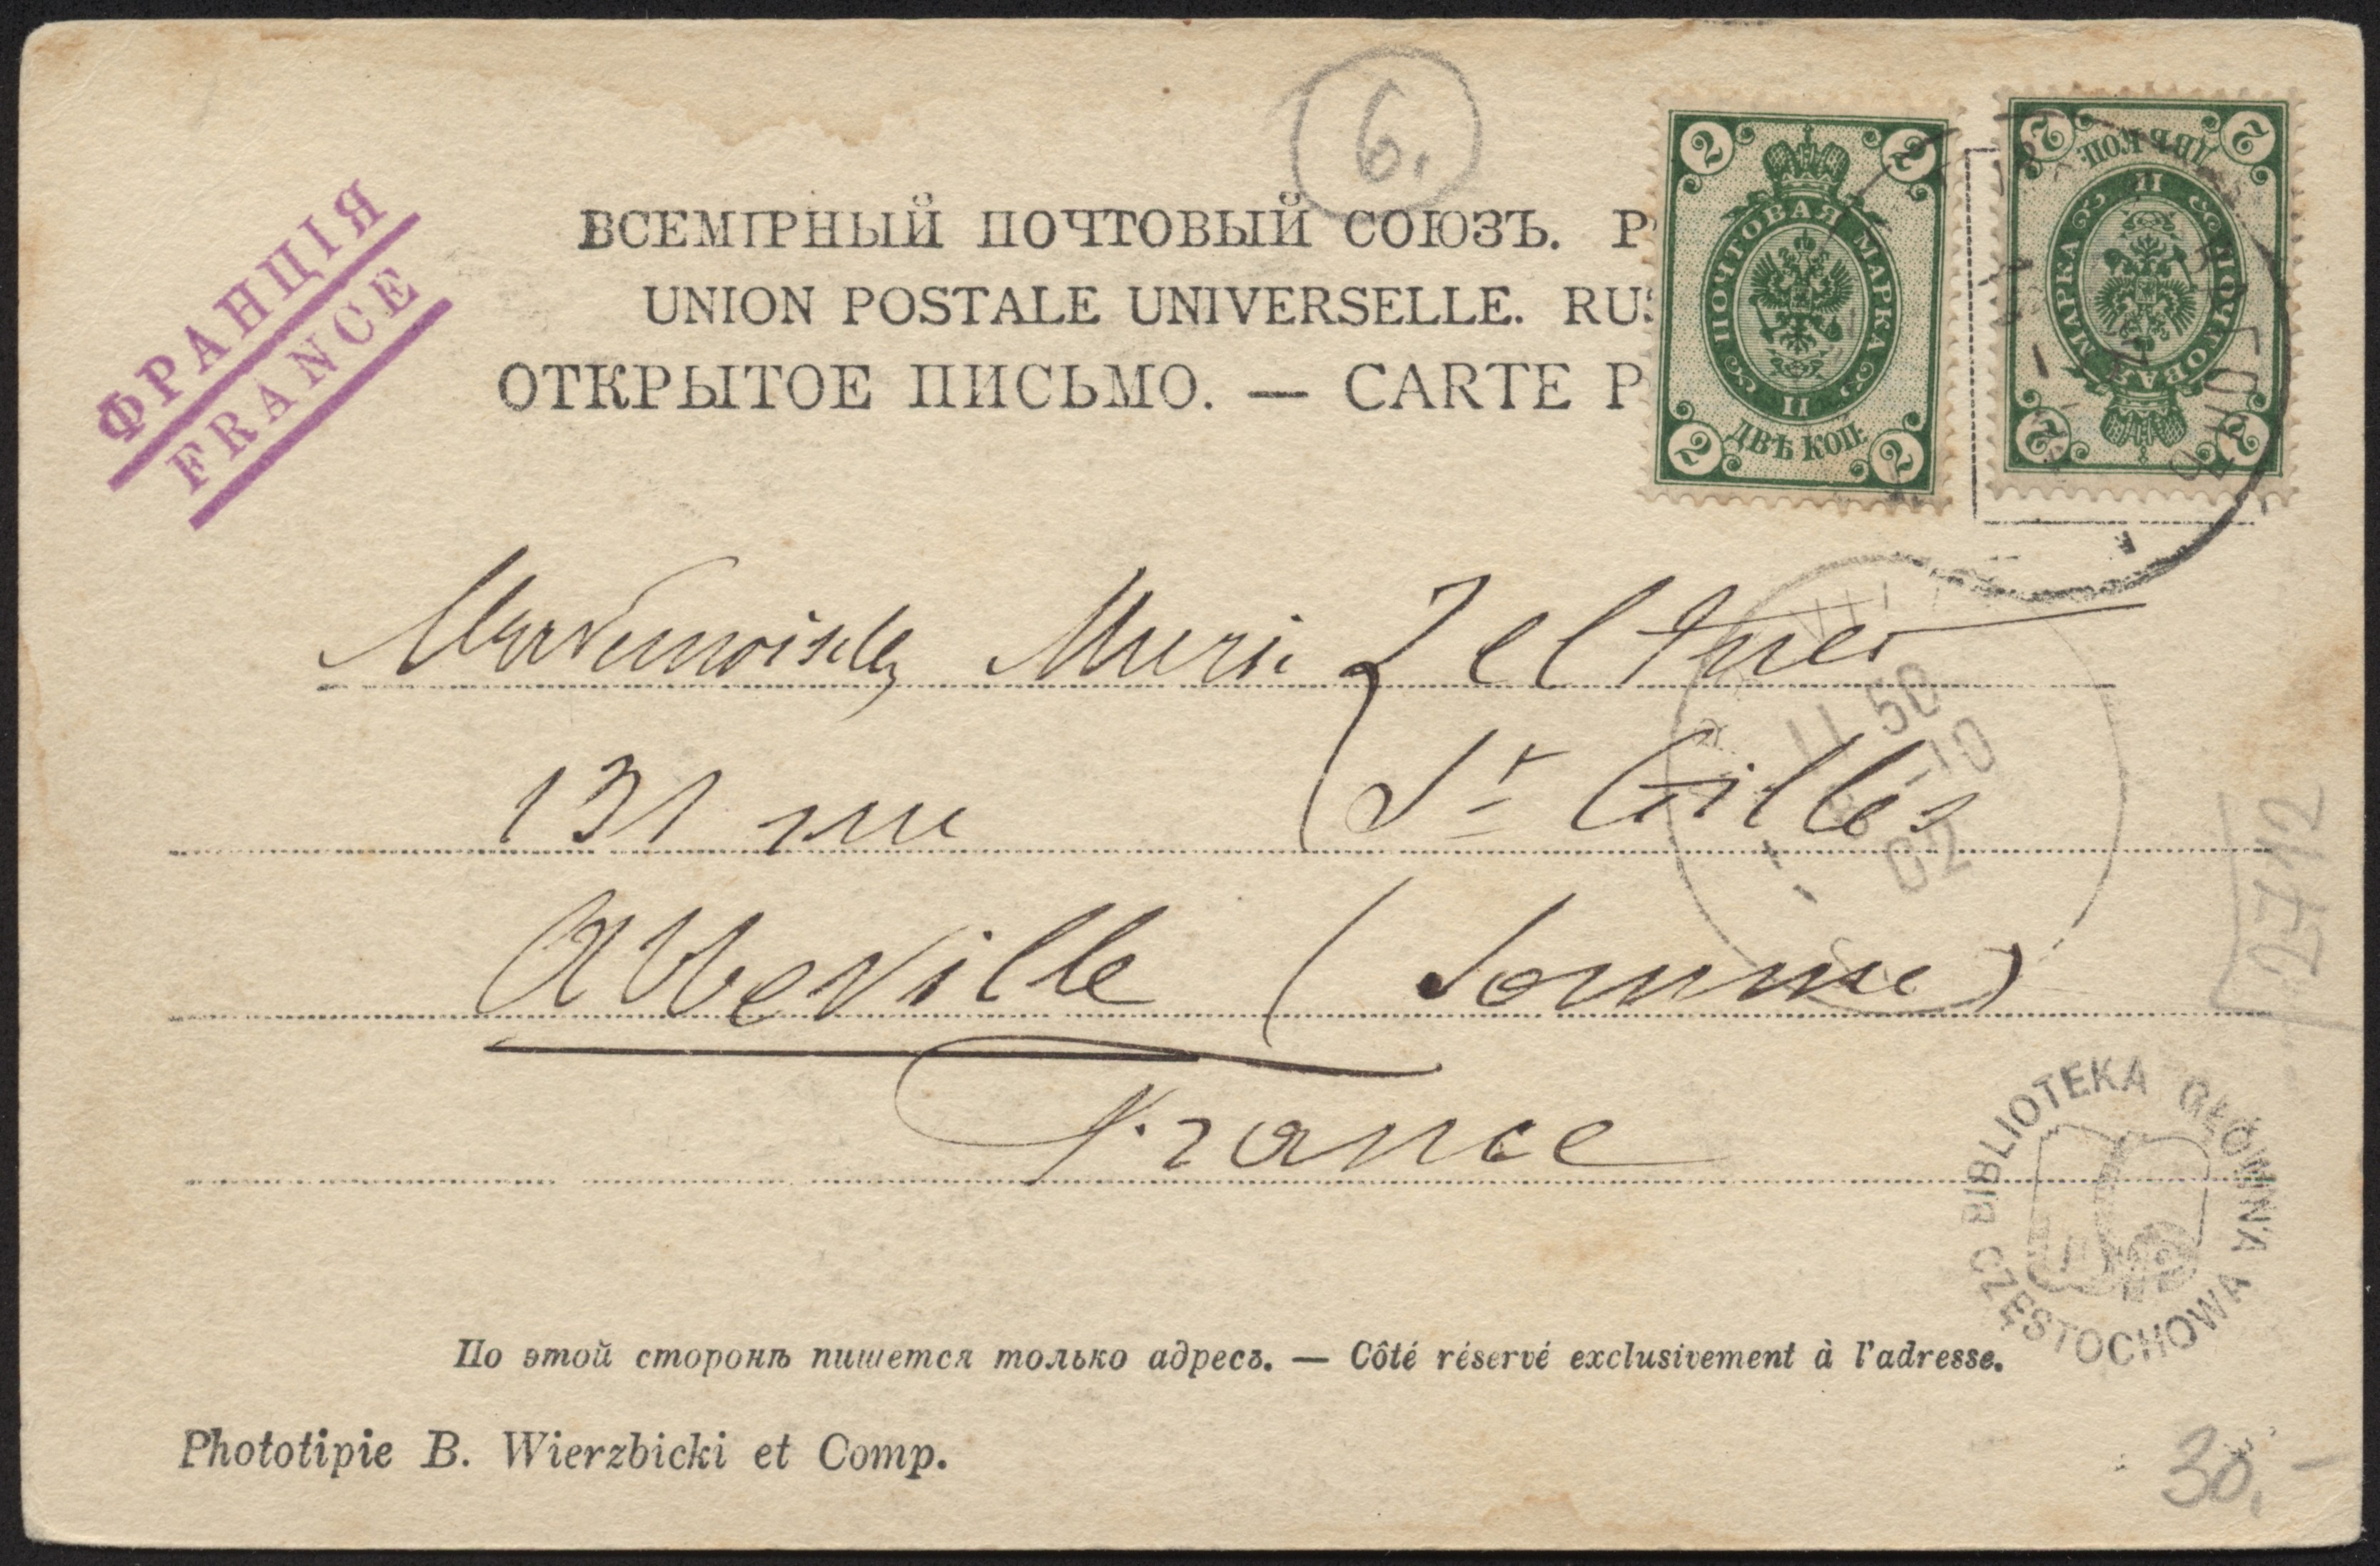 6.
ВСЕМІРНЫЙ ПОЧТОВЫЙ СОЮЗЪ. Р
UNION POSTALE UNIVERSELLE. RUS
ОТКРЫТОЕ ПИСЬМО. — CARTE P
ФРАНЦІЯ
FRANCE
2 2
ПОЧТОВАЯ МАРКА
II
ДВѢ КОП.
2 2
2 2
ПОЧТОВАЯ МАРКА
II
ДВѢ КОП.
2 2
Mademoiselle Marie Zeltner
131 rue St Gilles
Abbeville (Somme)
France
11 50
8-10
02
2712
BIBLIOTEKA GŁÓWNA
CZĘSTOCHOWA
По этой сторонѣ пишется только адресъ. — Côté réservé exclusivement à l'adresse.
Phototipie B. Wierzbicki et Comp.
30.-